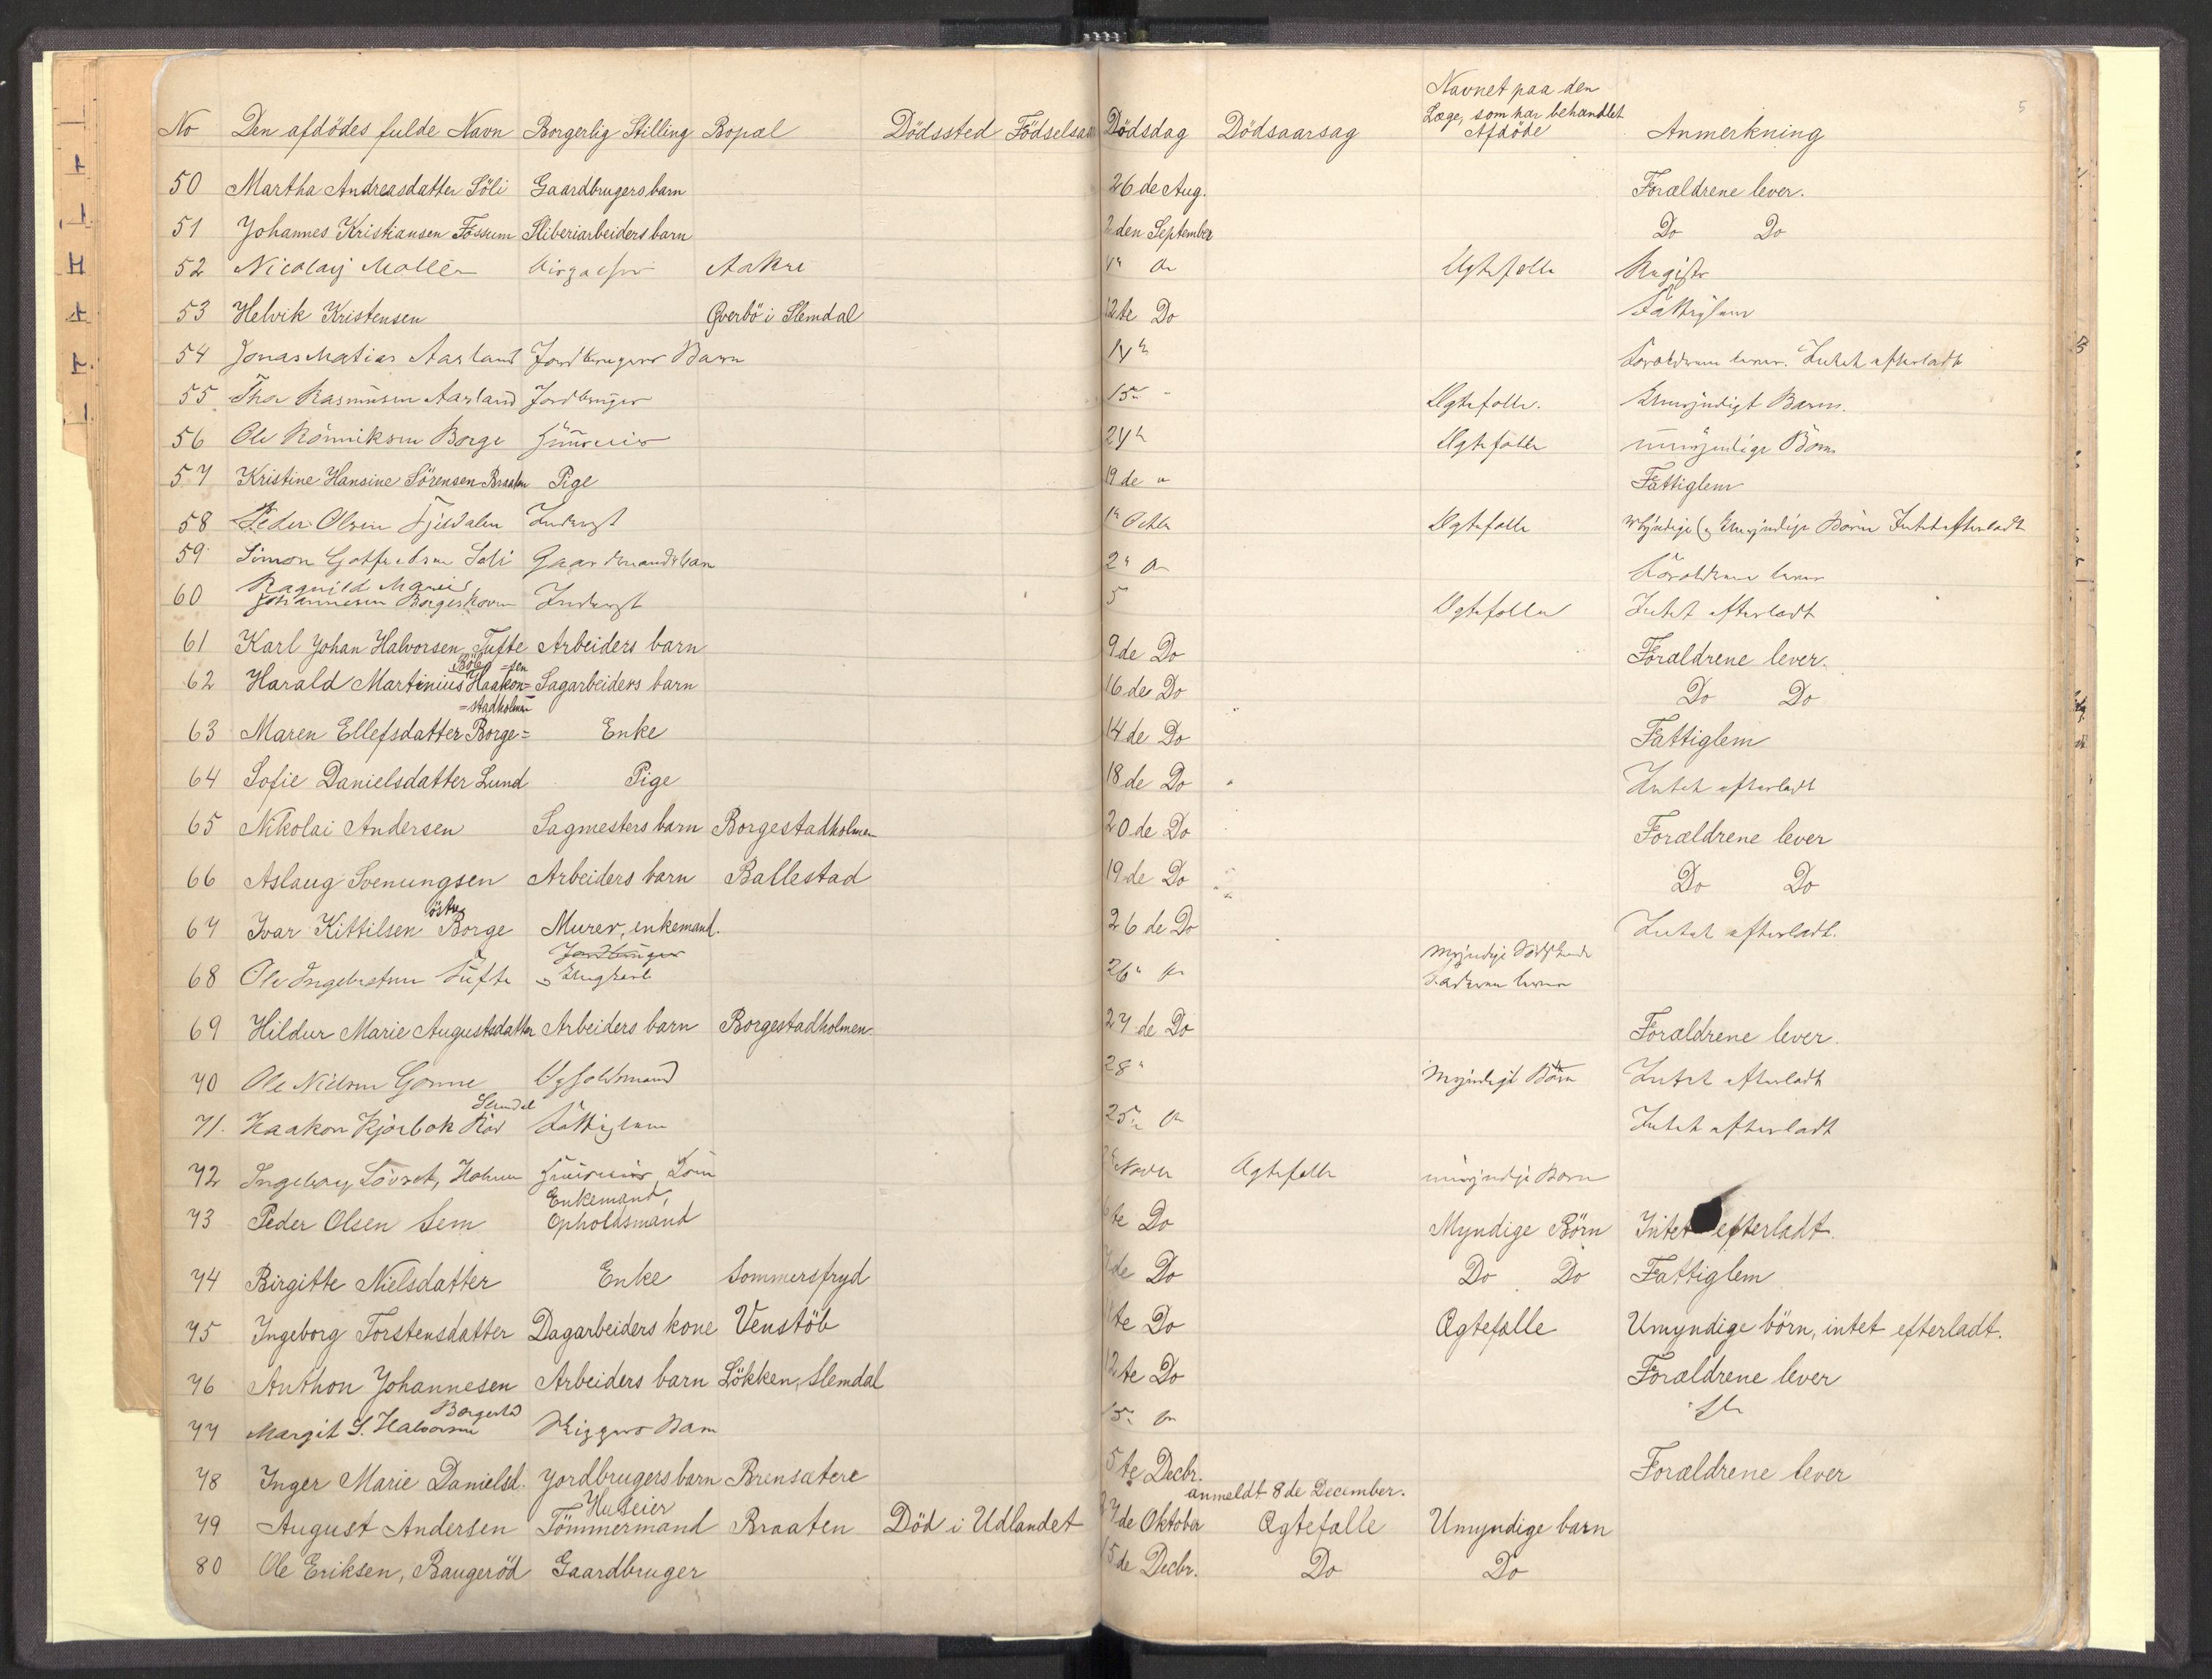 No Den afdödes fulde Navn Borgerlig Stilling Bopæl Dödssted Födselsaar Dödsdag Dödsaarsag Navnet paa den Læge, som har behandlet Afdöde Anmerkning
5
50 Martha Andreasdatter Söli Gaardbrugers barn 26 de Aug. Forældrene lever.
51 Johannes Kristiansen Fossum Sliberiarbeiders barn 2den September Do Do
52 Nicolay Møller Aakre Ægtefælle
53 Helvik Kristensen Qverbö i Slemdal 12te Do Fattiglem
54 Jonas Matias Aasland Jordbrugers Barn 14de Forældrene lever. Intet efterladt
55 Thor Rasmusen Aasland Jordbruger 15 - Ægtefælle. Umyndigt Barn.
56 Ole Borge Huseier 24de Ægtefælle umyndige Börn
57 Kristine Hansine Sörensen Braaten Pige 19 de " Fattiglem
58 Peder Olsen Fjeldalen Inderst 1ste Octbr Ægtefælle Myndige og Umyndige Börn Intet efterladt
59 Simon Söli Gaardmandsbarn 2den Do Forældrene lever
60 Ragnild Marie Johannesen Inderst 5 Ægtefælle Intet efterladt
61 Karl Johan Halvorsen Tufte Arbeiders barn 9de Do Forældrene lever.
62 Harald Martinius Haakon= =sen Böle Sagarbeiders barn 16 de Do Do Do
63 Maren Ellefsdatter Borge= =stadholmen Enke 14 de Do Fattiglem
64 Sofie Danielsdatter Lund Pige 18 de Do Intet efterladt
65 Nikolai Andersen Sagmesters barn Borgestadholmen 20 de Do Forældrene lever
66 Aslaug Svenungsen Arbeiders barn Ballestad 19 de Do Do Do
67 Ivar Kittilsen östre Borge Murer, enkemand. 26 de Do Intet efterladt.
68 Ole Ingebretsen Tufte Jordbruger Ungkarl 26 Do Myndige Södskende Faderen lever
69 Hildur Marie Augustsdatter Arbeiders barn Borgestadholmen. 27 de Do Forældrene lever.
70 Ole Nielsen Opholdsmand 28 Myndige Börn Intet efterladt
71. Haakon Kjörbek Slemdal Fattiglem 25 Do Intet efterladt
72 Ingeborg Huseier Novbr Ægtefælle umyndige Börn
73 Peder Olsen Sem Enkemand, Opholdsmand 6te Do Myndige Börn Intet efterladt.
74 Birgitte Nielsdatter Enke Sommersfryd de Do Do Do Fattiglem
75 Ingeborg Torstensdatter Dagarbeiders kone Venstöb 11te Do Ægtefælle Umyndige börn, intet efterladt.
76 Anthon Johannesen Arbeiders barn Lökken, Slemdal 12te Do Forældrene lever
77 Margit S. Halvorsen Borgestad Riggers Barn 15 Do Do
78 Inger Marie Danielsd. Jordbrugers barn Brensætere 5te Decbr. Forældrene lever
anmeldt 8 de December.
79 August Andersen Huseier Tömmermand Braaten Död i Udlandet 27de Oktober Ægtefælle Umyndige barn
80 Ole Eriksen, Baugeröd Gaardbruger 15de Decbr. Do Do